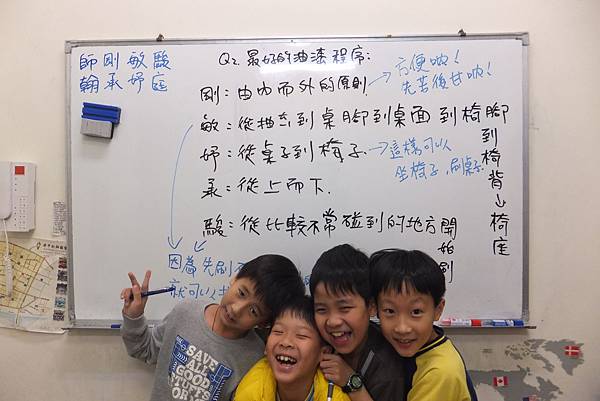 師剛敏駿
翰承妤庭
Q2. 最好的油漆程序:
剛：由內而外的原則
方便呦！
先苦後甘呦！
敏：從抽屜到桌腳到桌面到椅腳到椅背→椅座
妤：從桌子到椅子
這樣可以
坐椅子，刷桌子
承：從上而下.
駿：從比較不常碰到的地方開始刷
因為先刷
就可以
SAVE
ALL
GOOD
STUFF
FOR